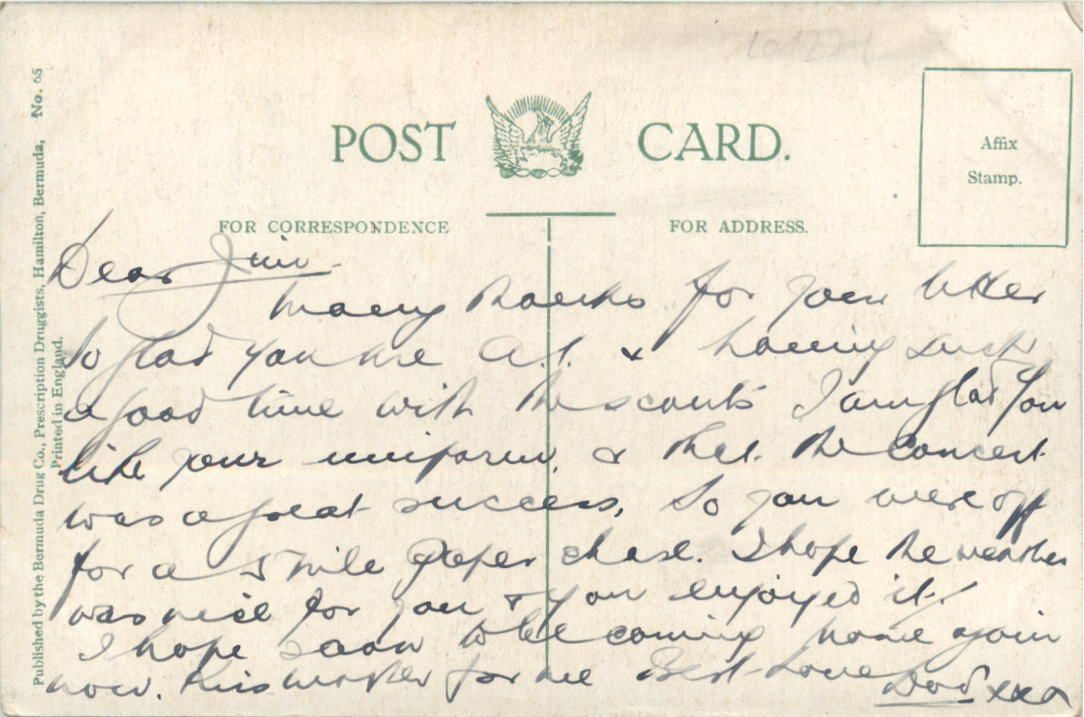 No. 65
Published by the Bermuda Drug Co., Prescription Druggists, Hamilton, Bermuda,
Printed in England.
POST CARD.
Affix
Stamp.
FOR CORRESPONDENCE
FOR ADDRESS.
Dear Jim -
Many thanks for your letter
So glad you are A.1. & having such
a good time with the scouts I am glad you
like your uniform. & that the concert
was a great success. So you were off
for a 5 mile paper chase. I hope the weather
was nice for you & you enjoyed it.
I hope soon to be coming home again
now. Kiss mother for me Best Love Dad xxx